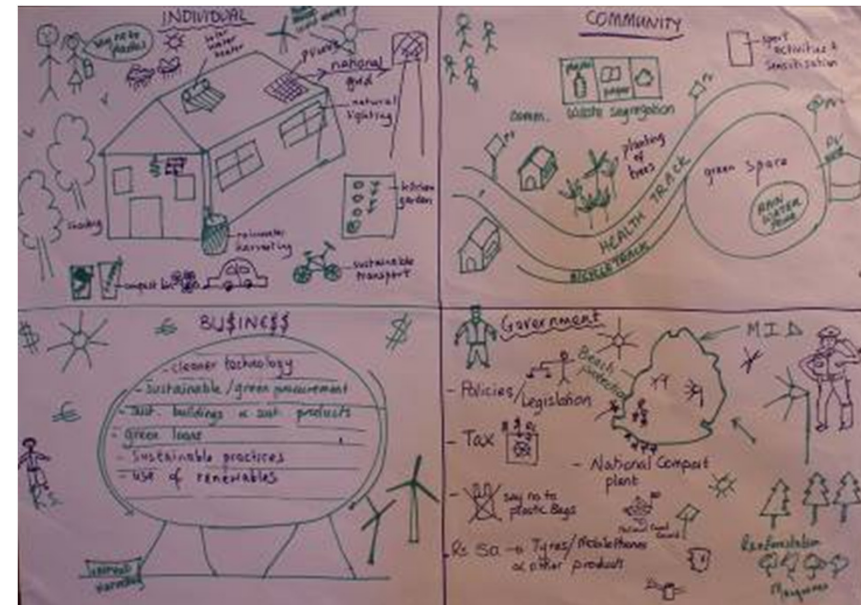 INDIVIDUAL
Say no to
plastics
solar
water
heater
PV
national
grid
natural
lighting
kitchen
garden
shading
rainwater
harvesting
compost bin
sustainable
transport
COMMUNITY
sport
activities &
sensitisation
plastic
paper
comm. Waste segregation
planting
of
trees
green space
RAIN
WATER
HEALTH TRACK
BICYCLE TRACK
PV
BU$INE$$
- cleaner technology
- sustainable/green procurement
- sust. buildings & sust. products
- green loans
- Sustainable practices
- use of renewables
Government
MID
Beach
protection
- Policies/
Legislation
- Tax
- National Compost
plant
say no to
plastic Bags
Rs 50 → Tyres/Mobile Phones
& other products
Reinforestation
Mangroves